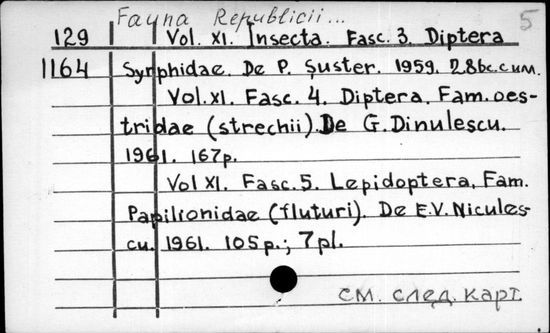 Fauna Republicii... 5
129 Vol. XI. Insecta. Fasc. 3. Diptera
1164 Syrphidae. De P. Şuster. 1959. 286с. с илл.
Vol. XI. Fasc. 4. Diptera. Fam. oes-
tridae (strechii). De G. Dinulescu.
1961. 167p.
Vol XI. Fasc. 5. Lepidoptera. Fam.
Papilionidae (fluturi). De E.V. Nicules-
cu. 1961. 105p.; 7pl.
см. след. карт.